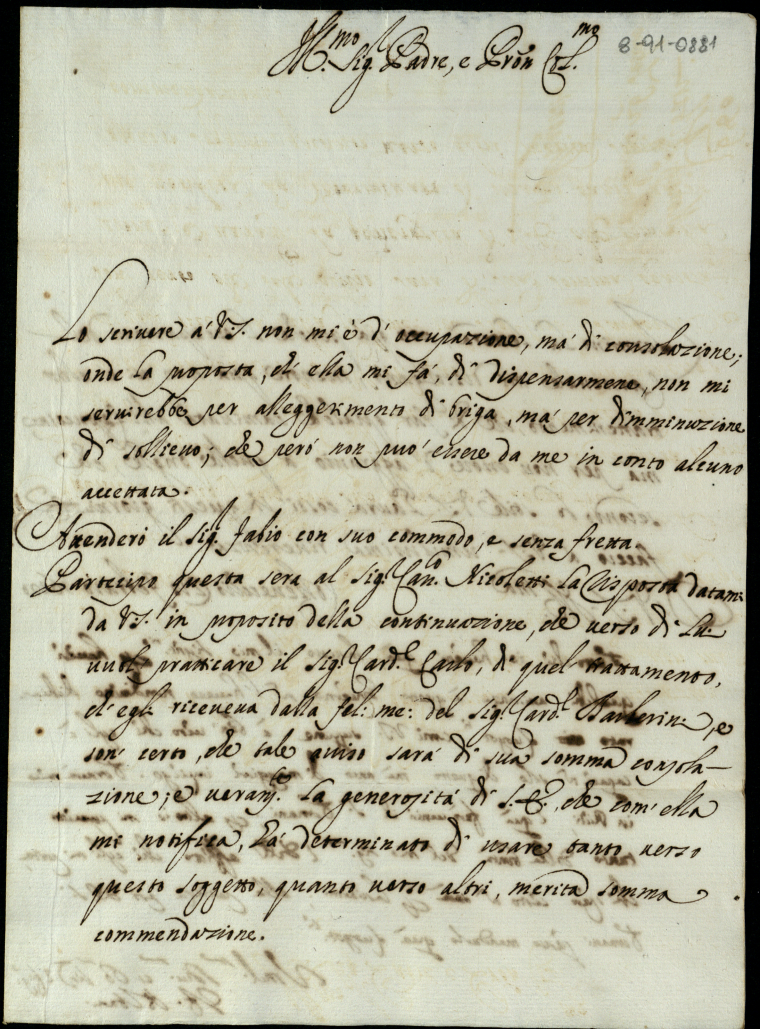 Ill.mo Sig.r Padre, e Pron Col.mo
8-91-0881
Lo scrivere á V.S. non mi è d' occupazione, má di consolazione;
onde la proposta, ch' ella mi fá, di dispensarmene, non mi
servirebbe per alleggerimento di briga, má per dimminuzione
di sollievo; che peró non puó essere da me in conto alcuno
accettata.
Attenderó il Sig.r Fabio con suo commodo, e senza fretta.
Partecipo questa sera al Sig.r Can.o Nicoletti la risposta datami
da V.S. in proposito della continuazione, che verso di lui
vuol pratticare il Sig.r Card.l Carlo, di quel trattamento,
ch' egli riceveva dalla fel: me: del Sig.r Card.l Barberini, e
son' certo, che tale aviso sará di sua somma consola-
zione; e veram.te la generositá di S.E., che com' ella
mi notifica, há determinato di usare tanto verso
questo soggetto, quanto verso altri, merita somma
commendazione.